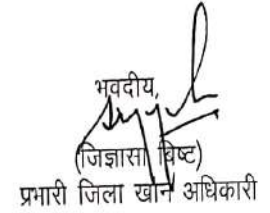 भवदीय,
(जिज्ञासा बिष्ट)
प्रभारी जिला खान अधिकारी